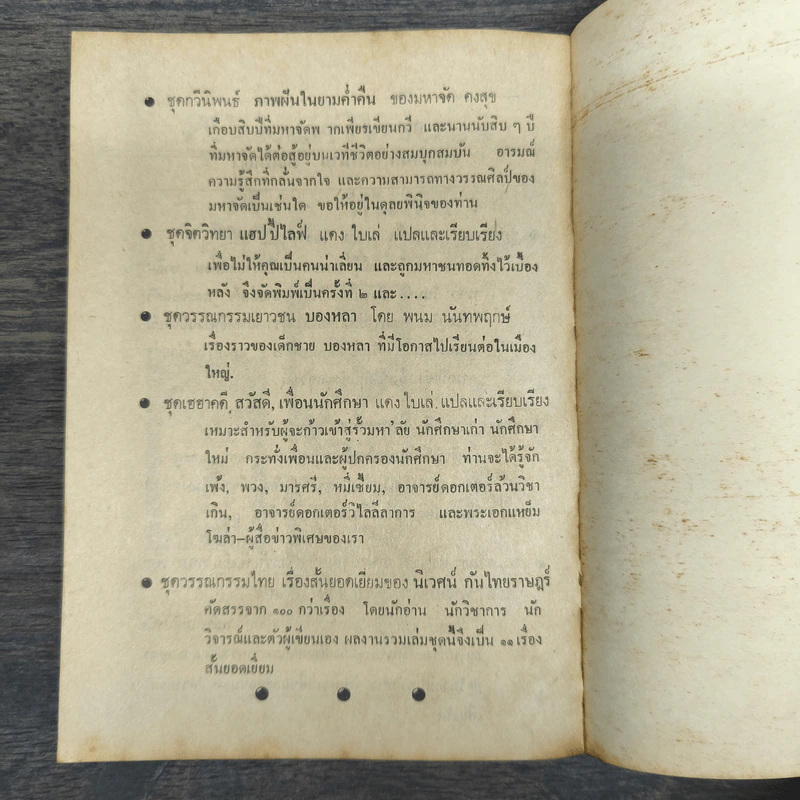 ● ชุดกวีนิพนธ์ ภาพฝันในยามค่ำคืน ของมหาจัด คงสุข
เกือบสิบปีที่มหาจัดพ ากเพียรเขียนกวี และนานนับสิบ ๆ ปี
ที่มหาจัดได้ต่อสู้อยู่บนเวทีชีวิตอย่างสมบุกสมบัน อารมณ์
ความรู้สึกที่กลั่นจากใจ และความสามารถทางวรรณศิลป์ของ
มหาจัดเป็นเช่นใด ขอให้อยู่ในดุลยพินิจของท่าน
● ชุดจิตวิทยา แฮปปี้ไลฟ์ แดง ใบเล่ แปลและเรียบเรียง
เพื่อไม่ให้คุณเป็นคนน่าเลี่ยน และถูกมหาชนทอดทิ้งไว้เบื้อง
หลัง จึงจัดพิมพ์เป็นครั้งที่ ๒ และ....
● ชุดวรรณกรรมเยาวชน บองหลา โดย พนม นันทพฤกษ์
เรื่องราวของเด็กชาย บองหลา ที่มีโอกาสไปเรียนต่อในเมือง
ใหญ่.
● ชุดเฮฮาคดี, สวัสดี, เพื่อนนักศึกษา แดง ใบเล่, แปลและเรียบเรียง
เหมาะสำหรับผู้จะก้าวเข้าสู่รั้วมหา'ลัย นักศึกษาเก่า นักศึกษา
ใหม่ กระทั่งเพื่อนและผู้ปกครองนักศึกษา ท่านจะได้รู้จัก
เพ้ง, พวง, มารศรี, หมี่เซี้ยม, อาจารย์ดอกเตอร์ล้วนวิชา
เกิน, อาจารย์ดอกเตอร์วิไลลีลาการ และพระเอกแหย็ม
โฆล่า–ผู้สื่อข่าวพิเศษของเรา
● ชุดวรรณกรรมไทย เรื่องสั้นยอดเยี่ยมของ นิเวศน์ กันไทยราษฎร์
คัดสรรจาก ๑๐๐ กว่าเรื่อง โดยนักอ่าน นักวิชาการ นัก
วิจารณ์และตัวผู้เขียนเอง ผลงานรวมเล่มชุดนี้จึงเป็น ๑๑ เรื่อง
สั้นยอดเยี่ยม
● ● ●